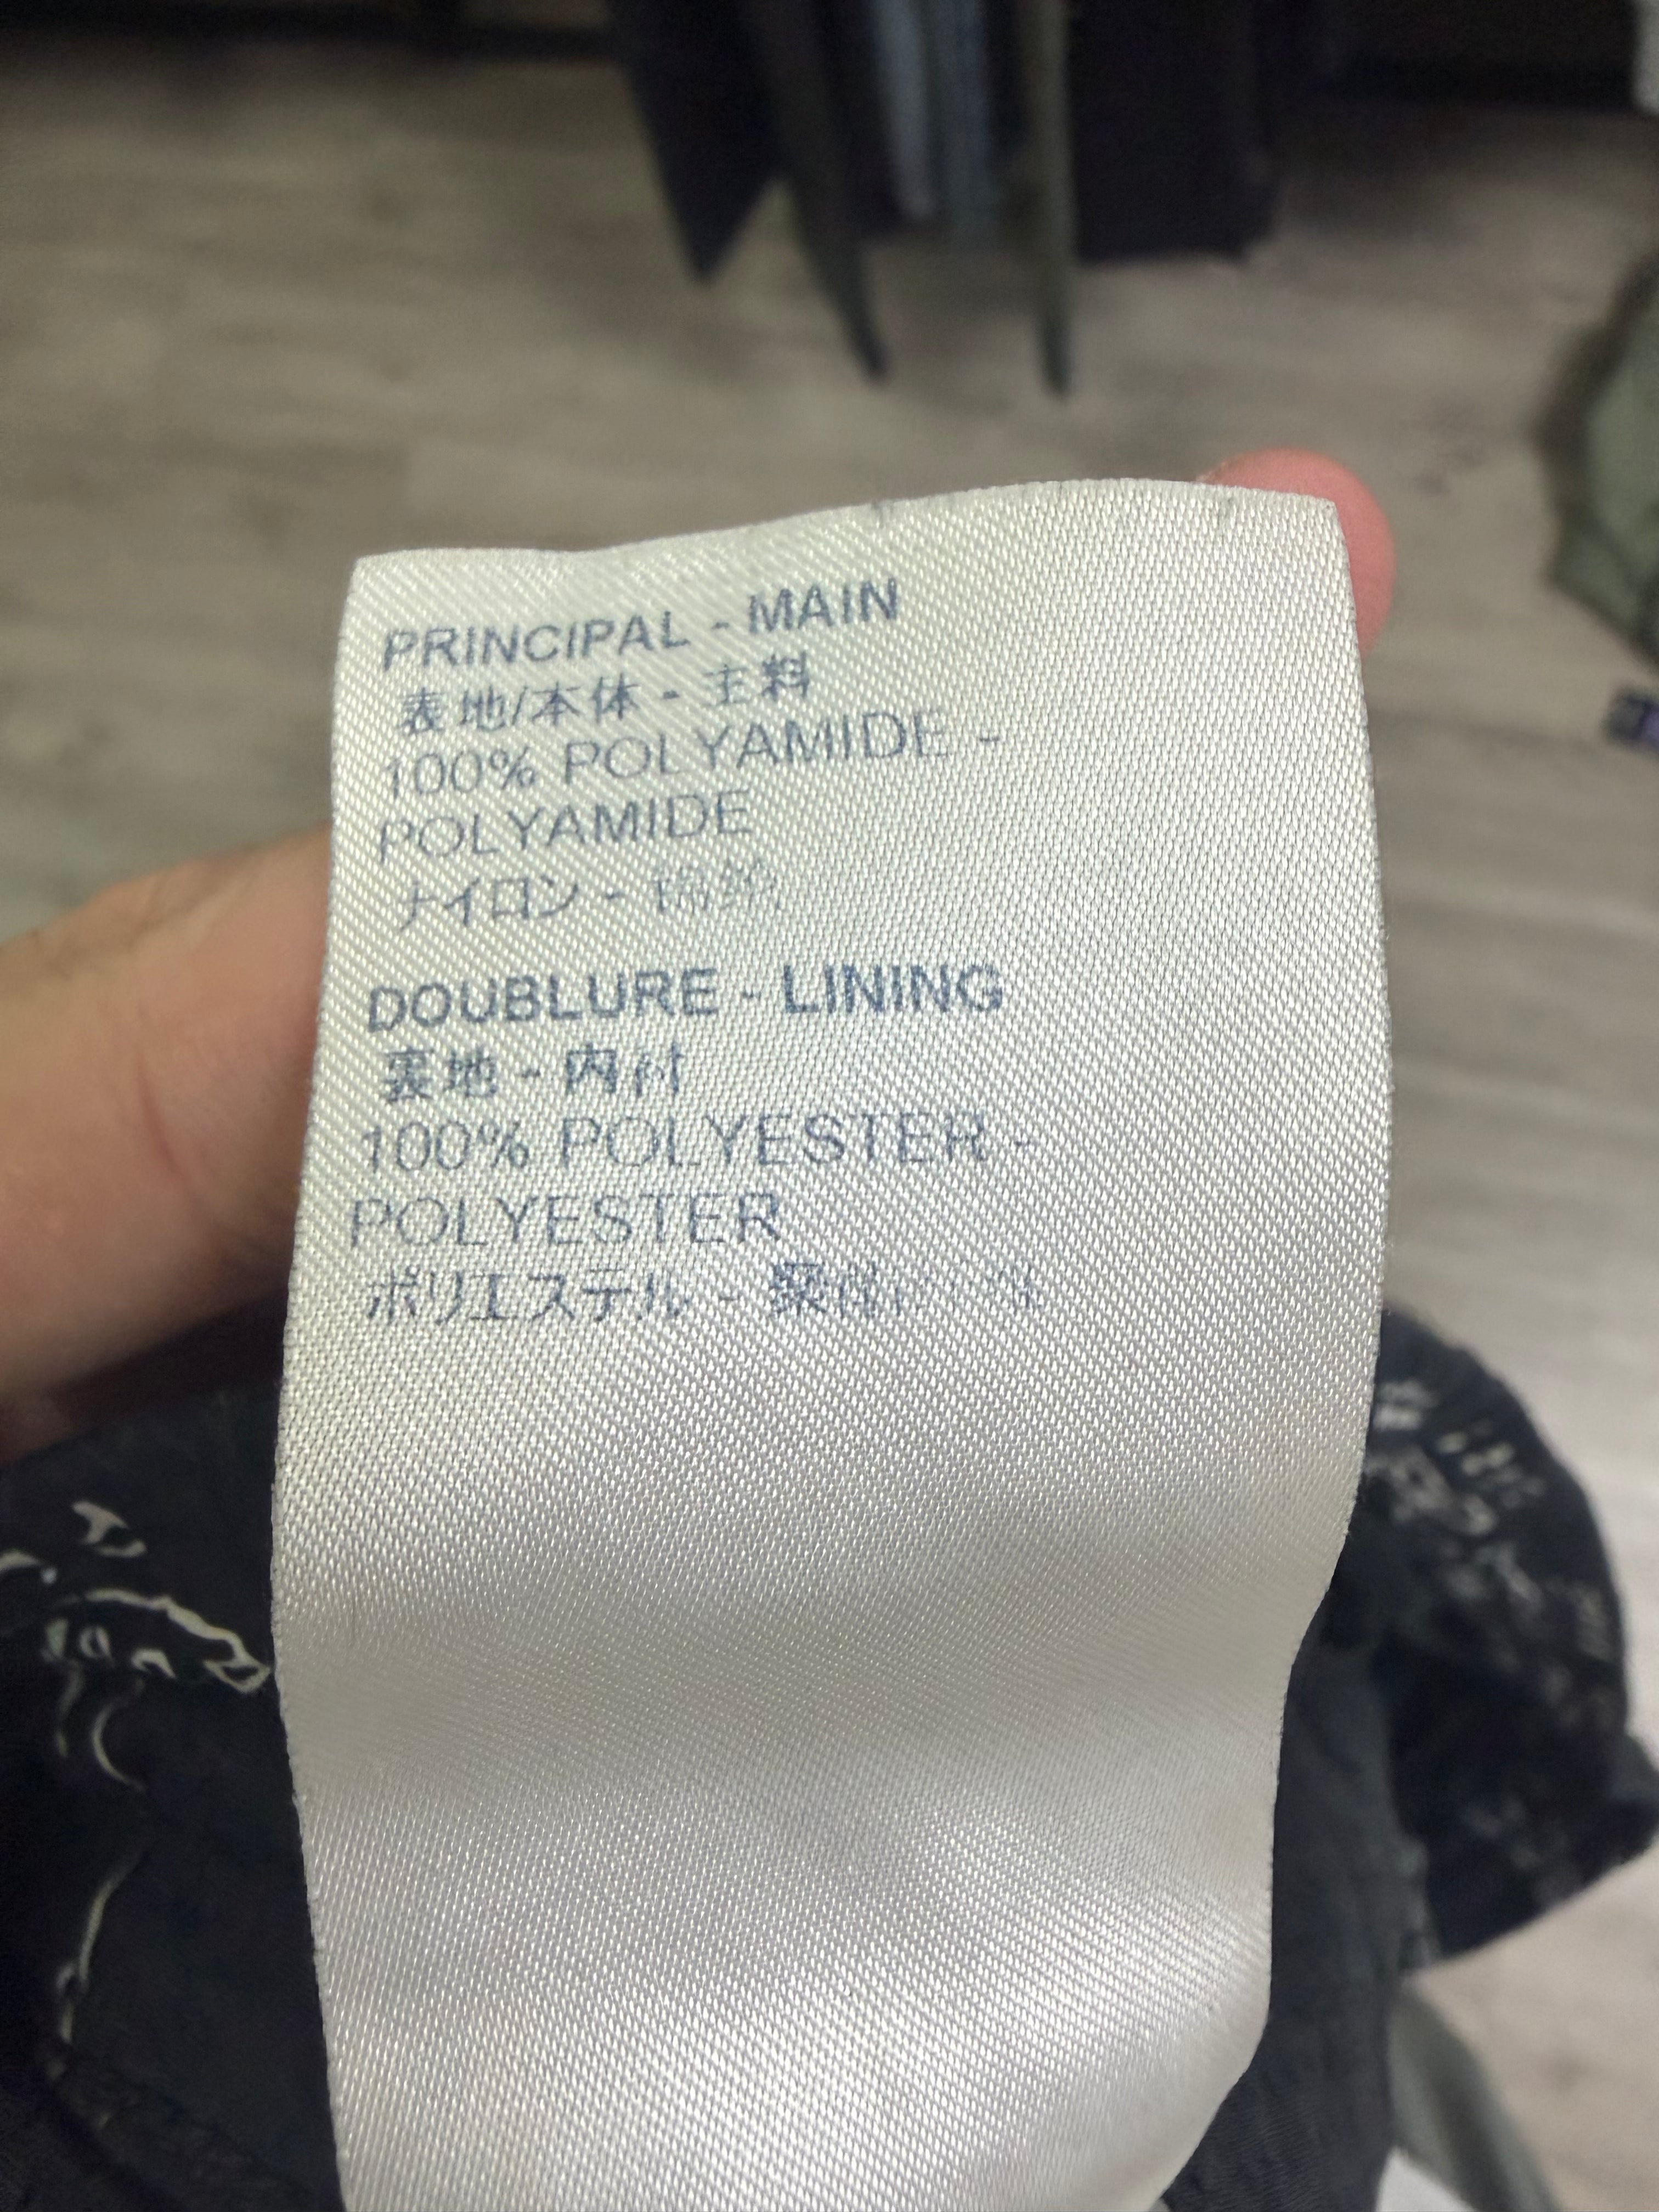 PRINCIPAL - MAIN
表地/本体 - 主料
100% POLYAMIDE -
POLYAMIDE
ナイロン - 锦纶
DOUBLURE - LINING
裏地 - 内衬
100% POLYESTER -
POLYESTER
ポリエステル -